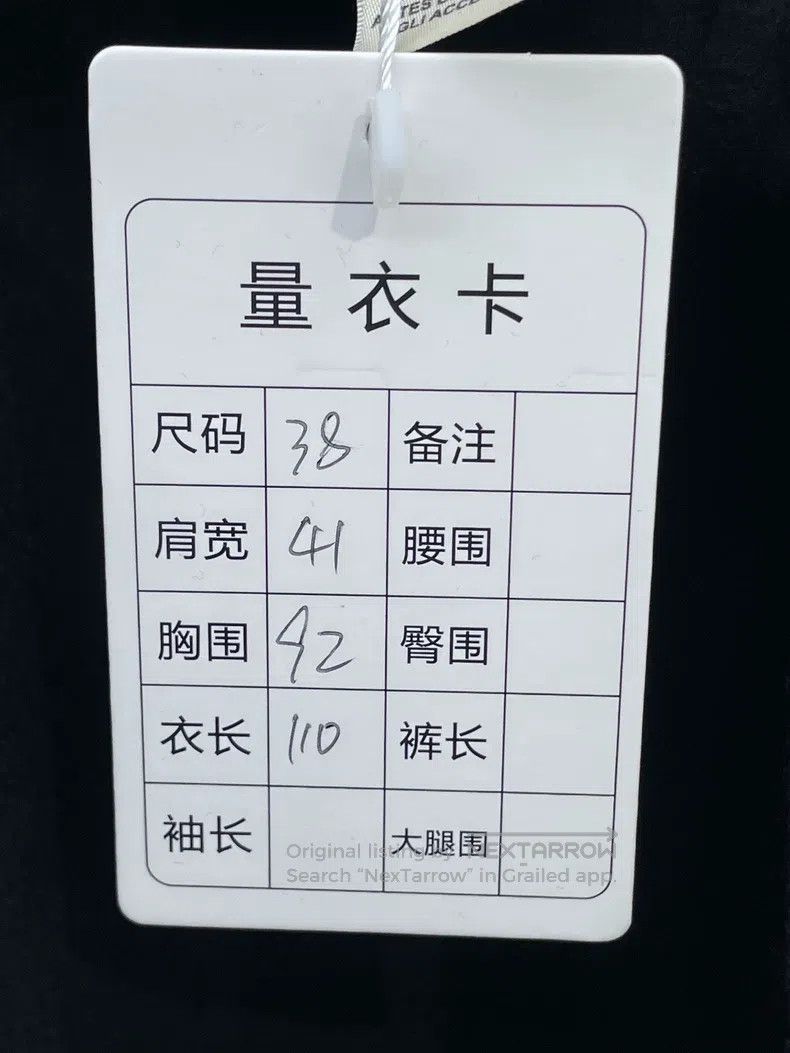 量衣卡
尺码 38 备注
肩宽 41 腰围
胸围 92 臀围
衣长 110 裤长
袖长 大腿围
Original listing by NEXTARROW
Search “NexTarrow” in Grailed app.